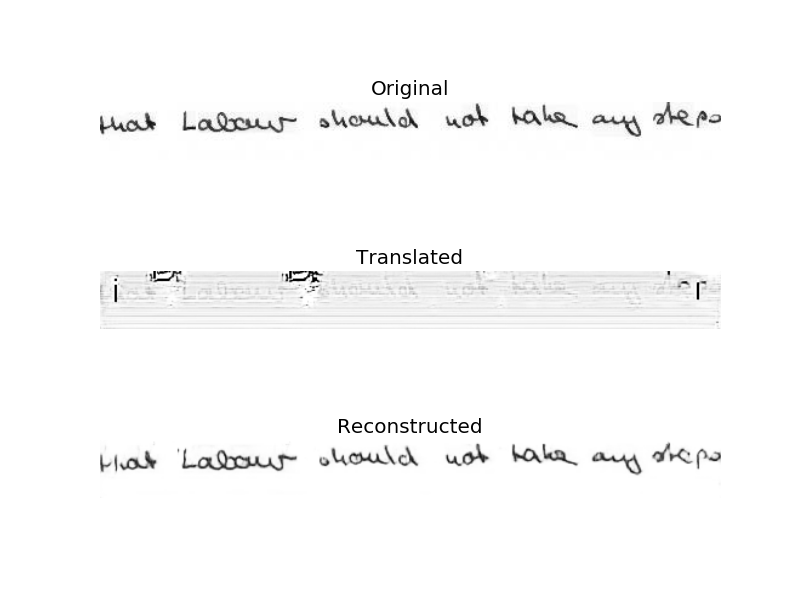 Original
that Labour should not take any steps
Translated
that Labour should not take any
Reconstructed
that Labour should not take any steps